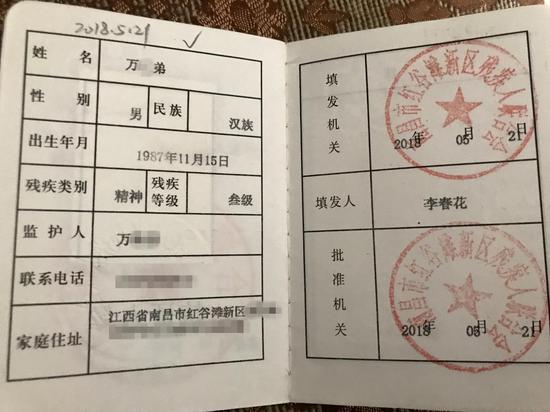 2018.5.21
姓名
万 弟
性别
男
民族
汉族
出生年月
1987年11月15日
残疾类别
精神
残疾等级
叁级
监护人
万
联系电话
家庭住址
江西省南昌市红谷滩新区
填发机关
南昌市红谷滩新区残疾人联合会
2018年 05月 21日
填发人
李春花
批准机关
南昌市红谷滩新区残疾人联合会
2018年 05月 21日